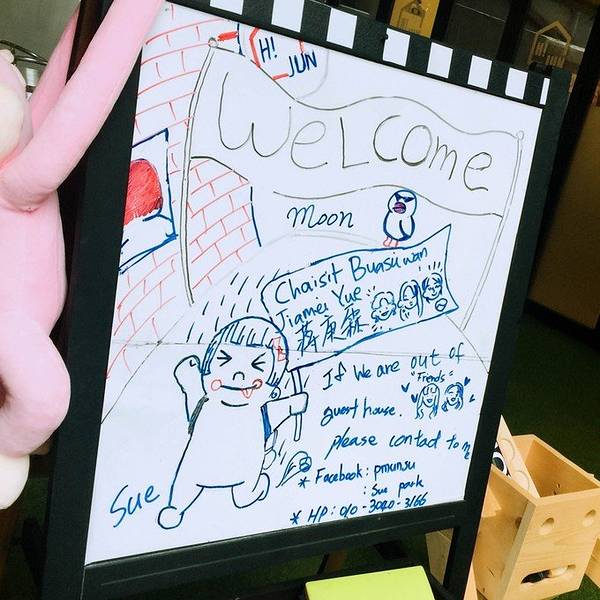 Hi!
JUN
Welcome
moon
Chaisit Buasuwan
Jiamei Yue
蒋康霖
If we are out of
"Friends"
guest house.
please contact to me
* Facebook : pmunsu
: Sue park
* HP : 010 - 3040 - 3166
Sue